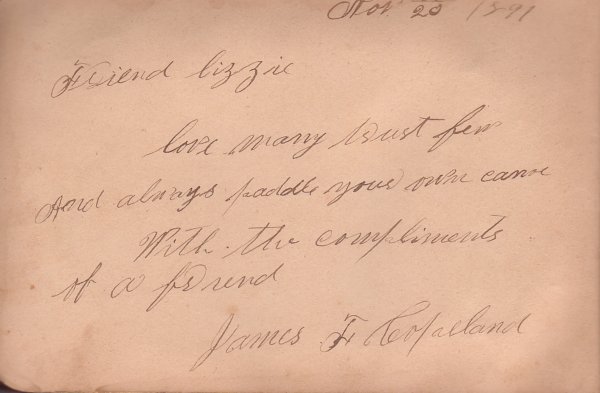 Nov. 20 1891
Friend Lizzie
love many trust few
And always paddle your own canoe
With the compliments
of a friend
James F Copeland